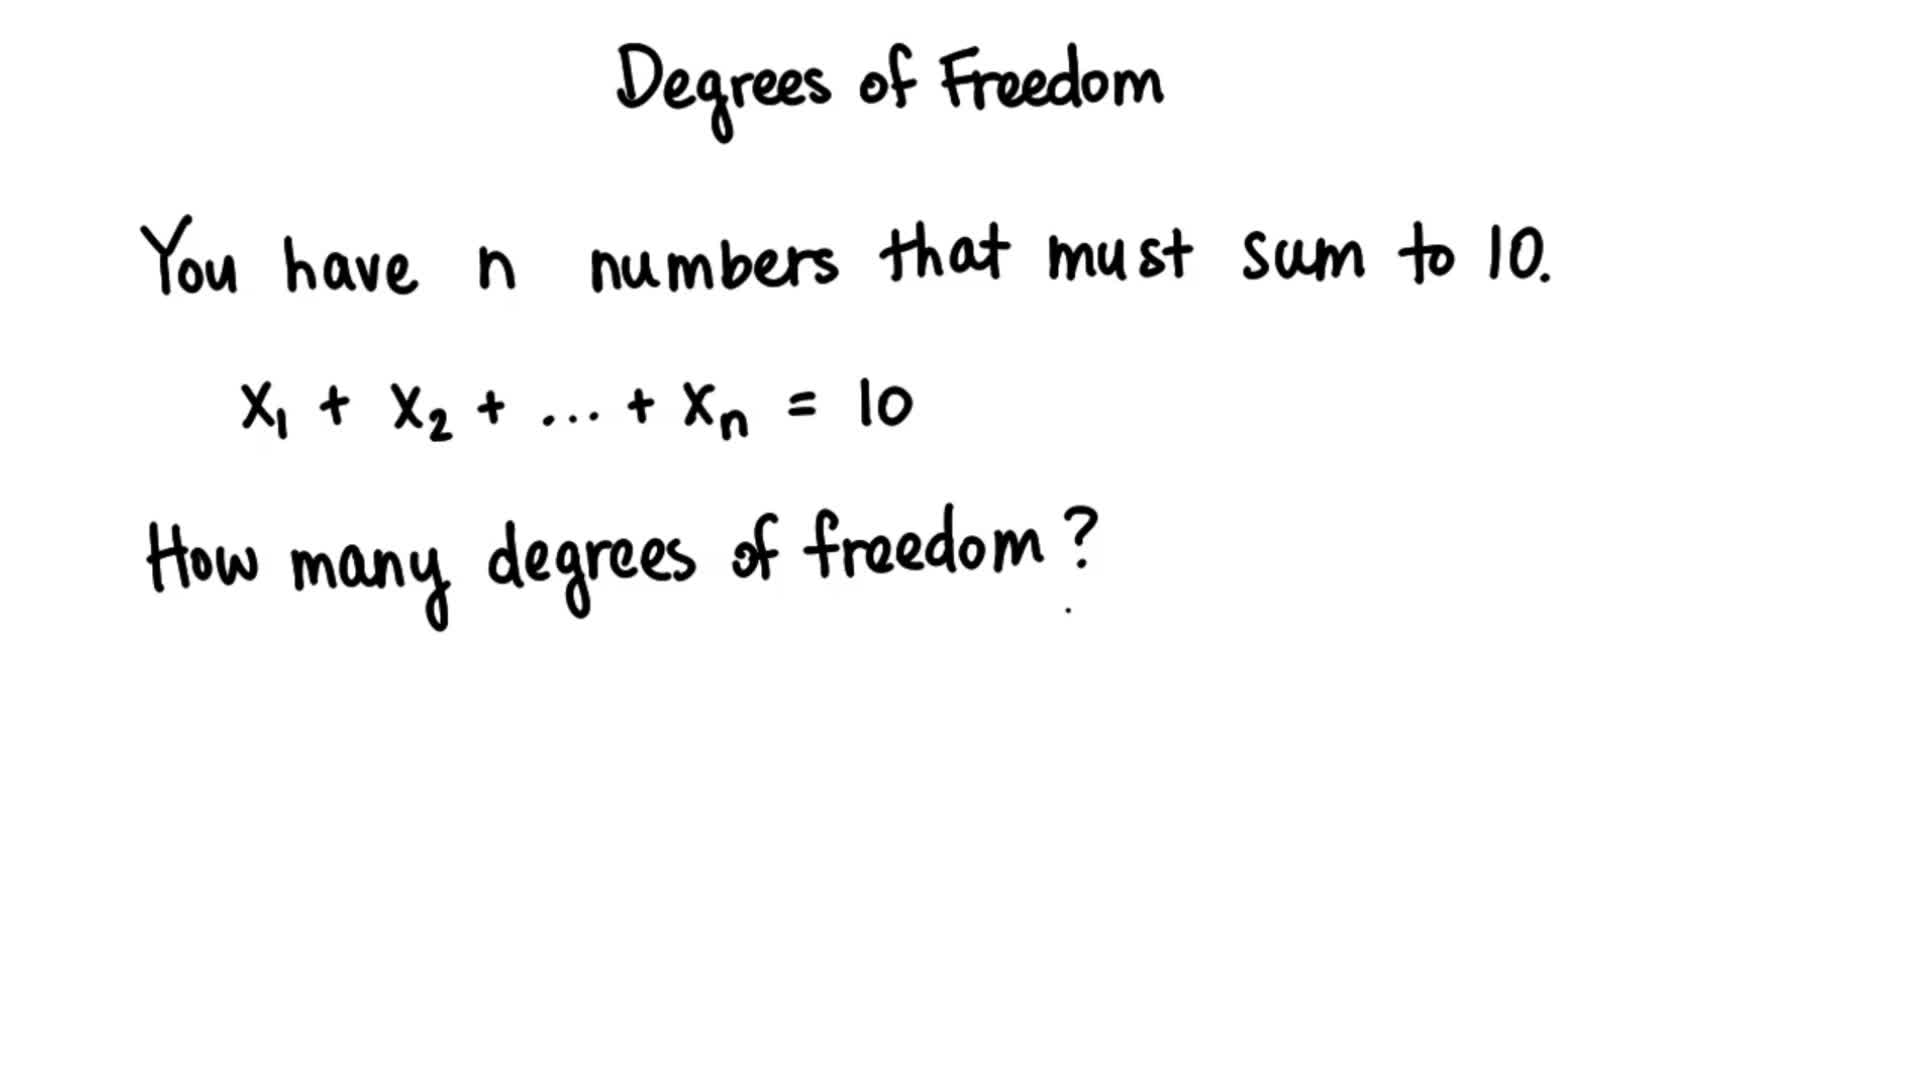 Degrees of Freedom
You have n numbers that must sum to 10.
x₁ + x₂ + ... + xₙ = 10
How many degrees of freedom?